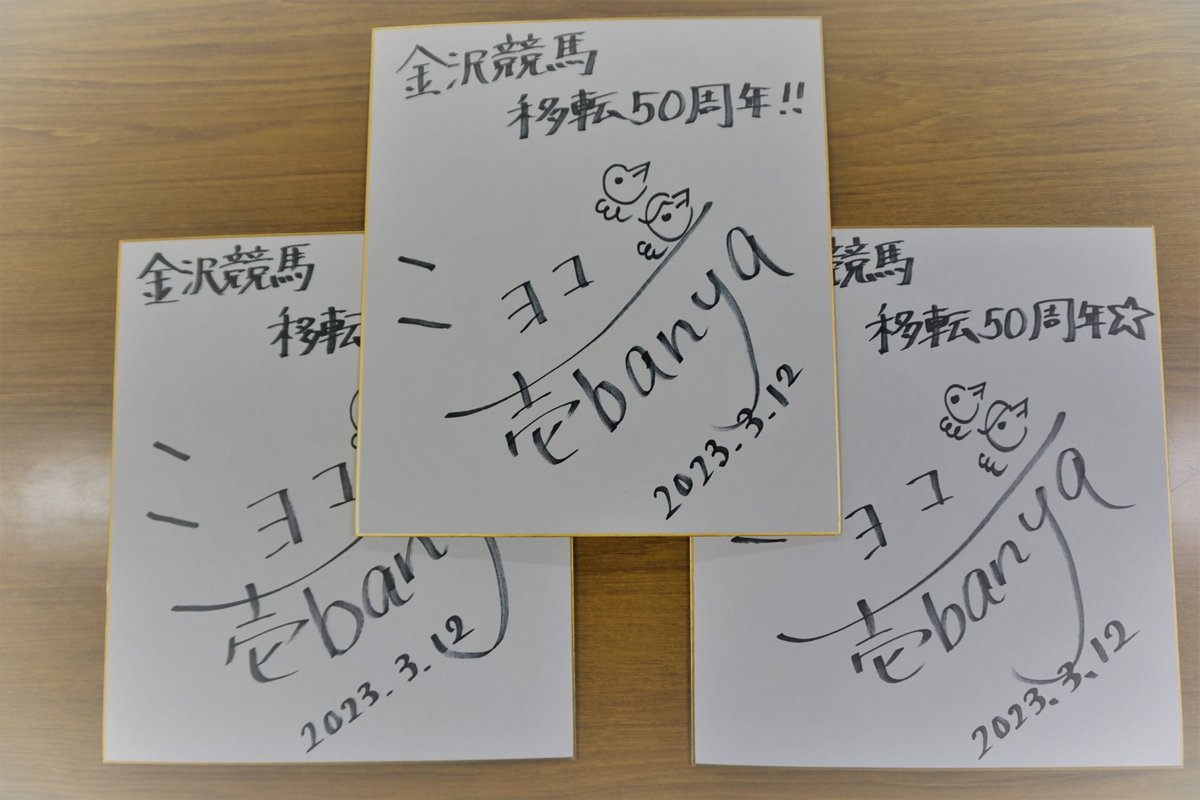 金沢競馬
移転50周年!!
ヨコ
壱banya
2023.3.12
金沢競馬
移転
ヨコ
壱ban
2023.3.12
競馬
移転50周年☆
ヨコ
壱banya
2023.3.12